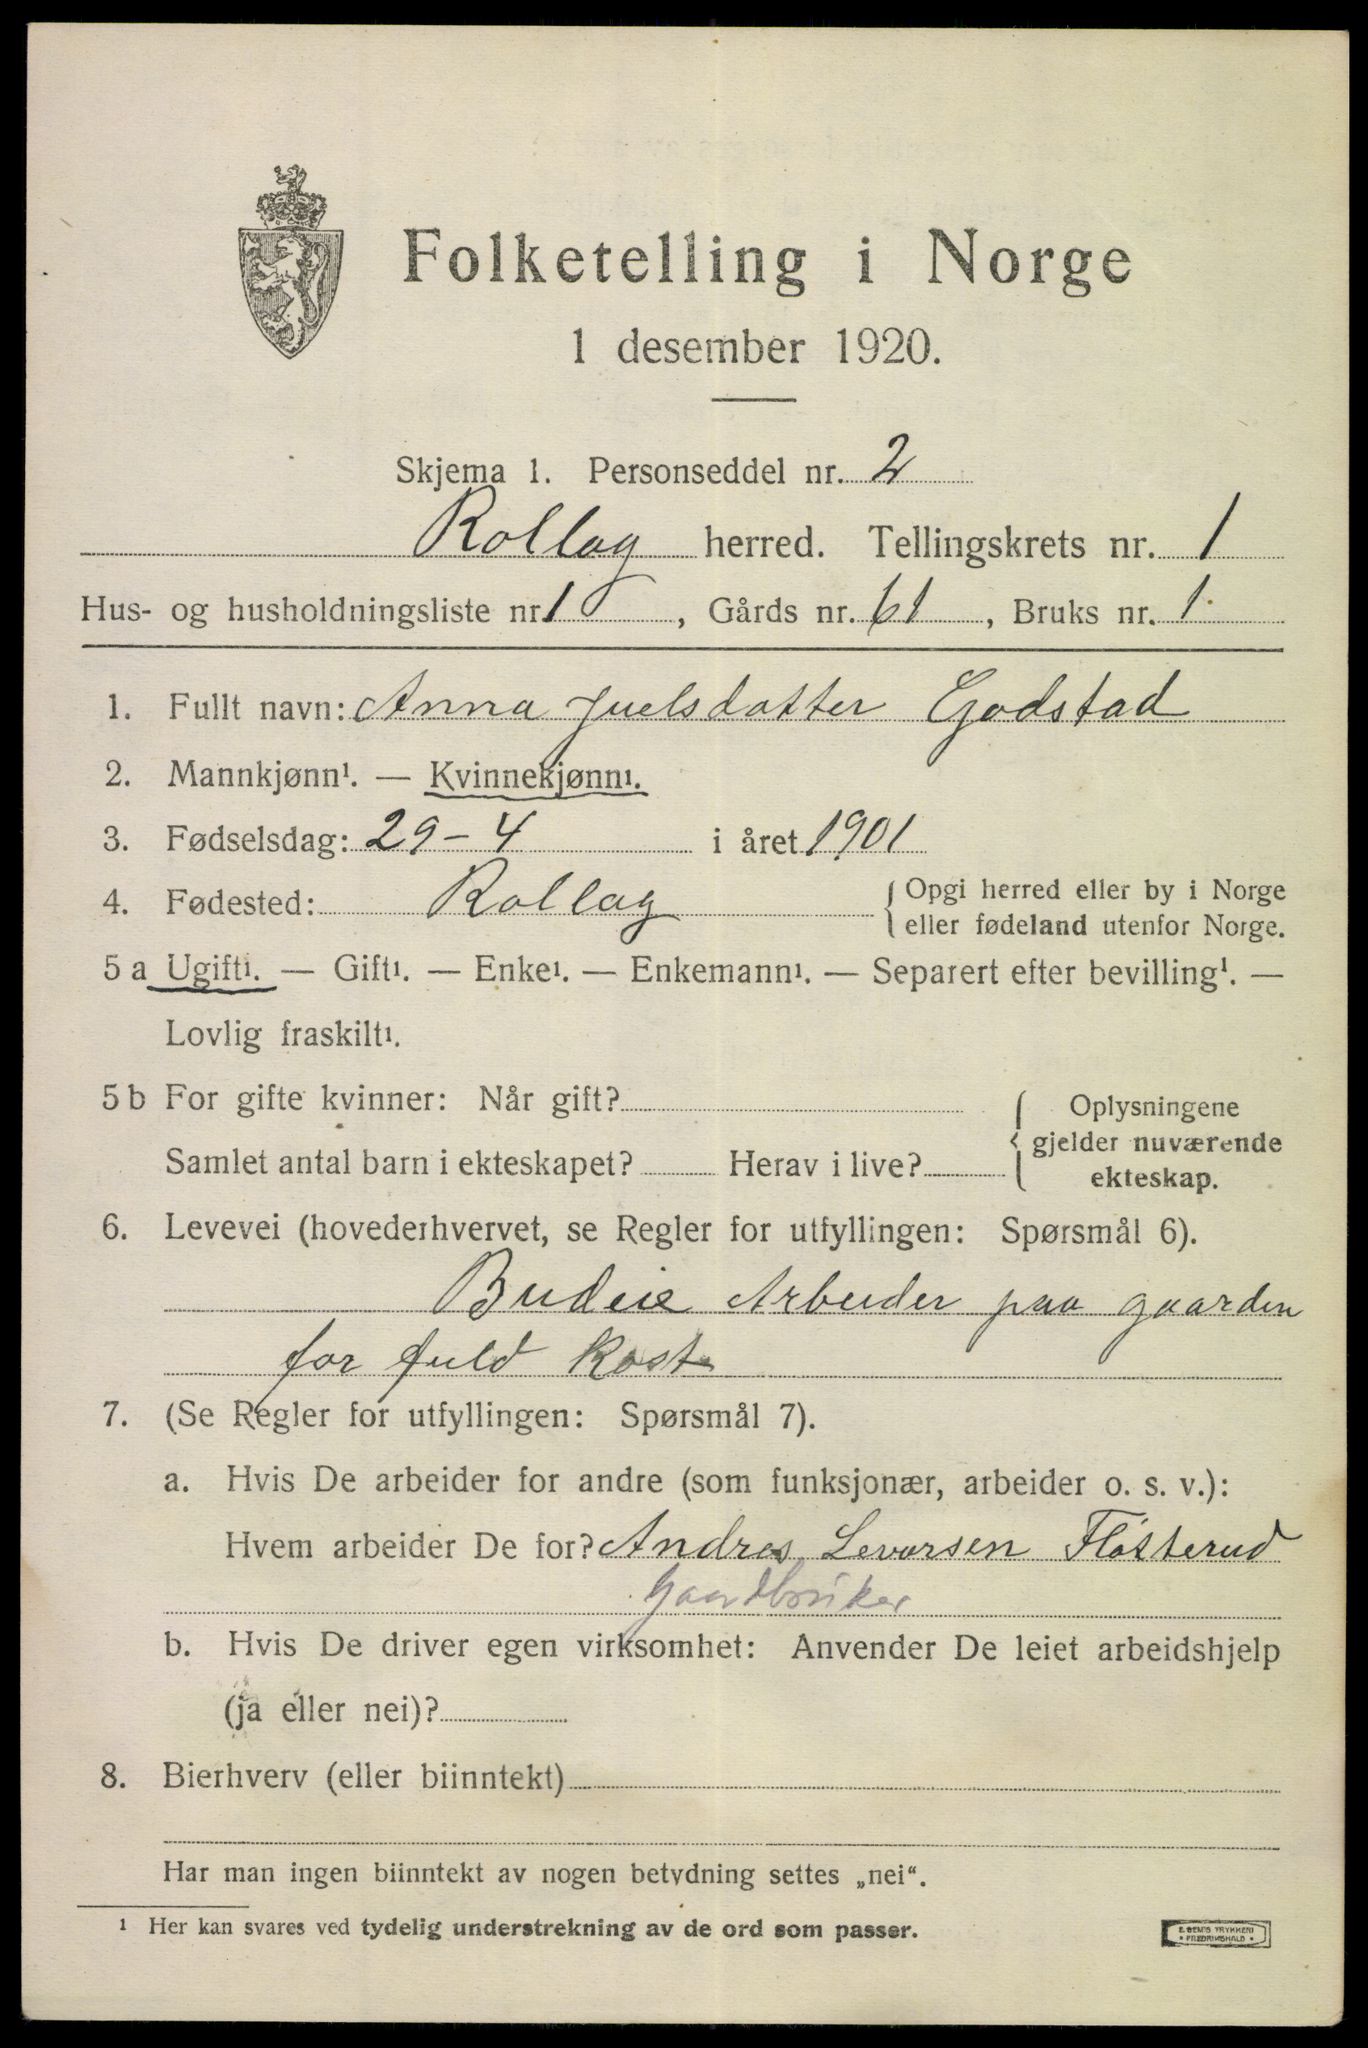 Folketelling i Norge
1 desember 1920.
Skjema 1. Personseddel nr. 2
Rollag herred. Tellingskrets nr. 1
Hus- og husholdningsliste nr. 1, Gårds nr. 61, Bruks nr. 1
1. Fullt navn: Anna Juelsdatter Godstad
2. Mannkjønn¹. — Kvinnekjønn¹.
3. Fødselsdag: 29-4 i året 1901
4. Fødested: Rollag { Opgi herred eller by i Norge
eller fødeland utenfor Norge.
5 a Ugift¹. — Gift¹. — Enke¹. — Enkemann¹. — Separert efter bevilling¹. —
Lovlig fraskilt¹.
5 b For gifte kvinner: Når gift? { Oplysningene
gjelder nuværende
ekteskap.
Samlet antal barn i ekteskapet? Herav i live?
6. Levevei (hovederhvervet, se Regler for utfyllingen: Spørsmål 6).
Budeie Arbeider paa gaarden
for fuld kost
7. (Se Regler for utfyllingen: Spørsmål 7).
a. Hvis De arbeider for andre (som funksjonær, arbeider o. s. v.):
Hvem arbeider De for? Andres Levorsen Fløsterud
Gaardbruker
b. Hvis De driver egen virksomhet: Anvender De leiet arbeidshjelp
(ja eller nei)?
8. Bierhverv (eller biinntekt)
Har man ingen biinntekt av nogen betydning settes „nei“.
¹ Her kan svares ved tydelig understrekning av de ord som passer.
E. SEM'S TRYKKERI
FREDRIKSHALD